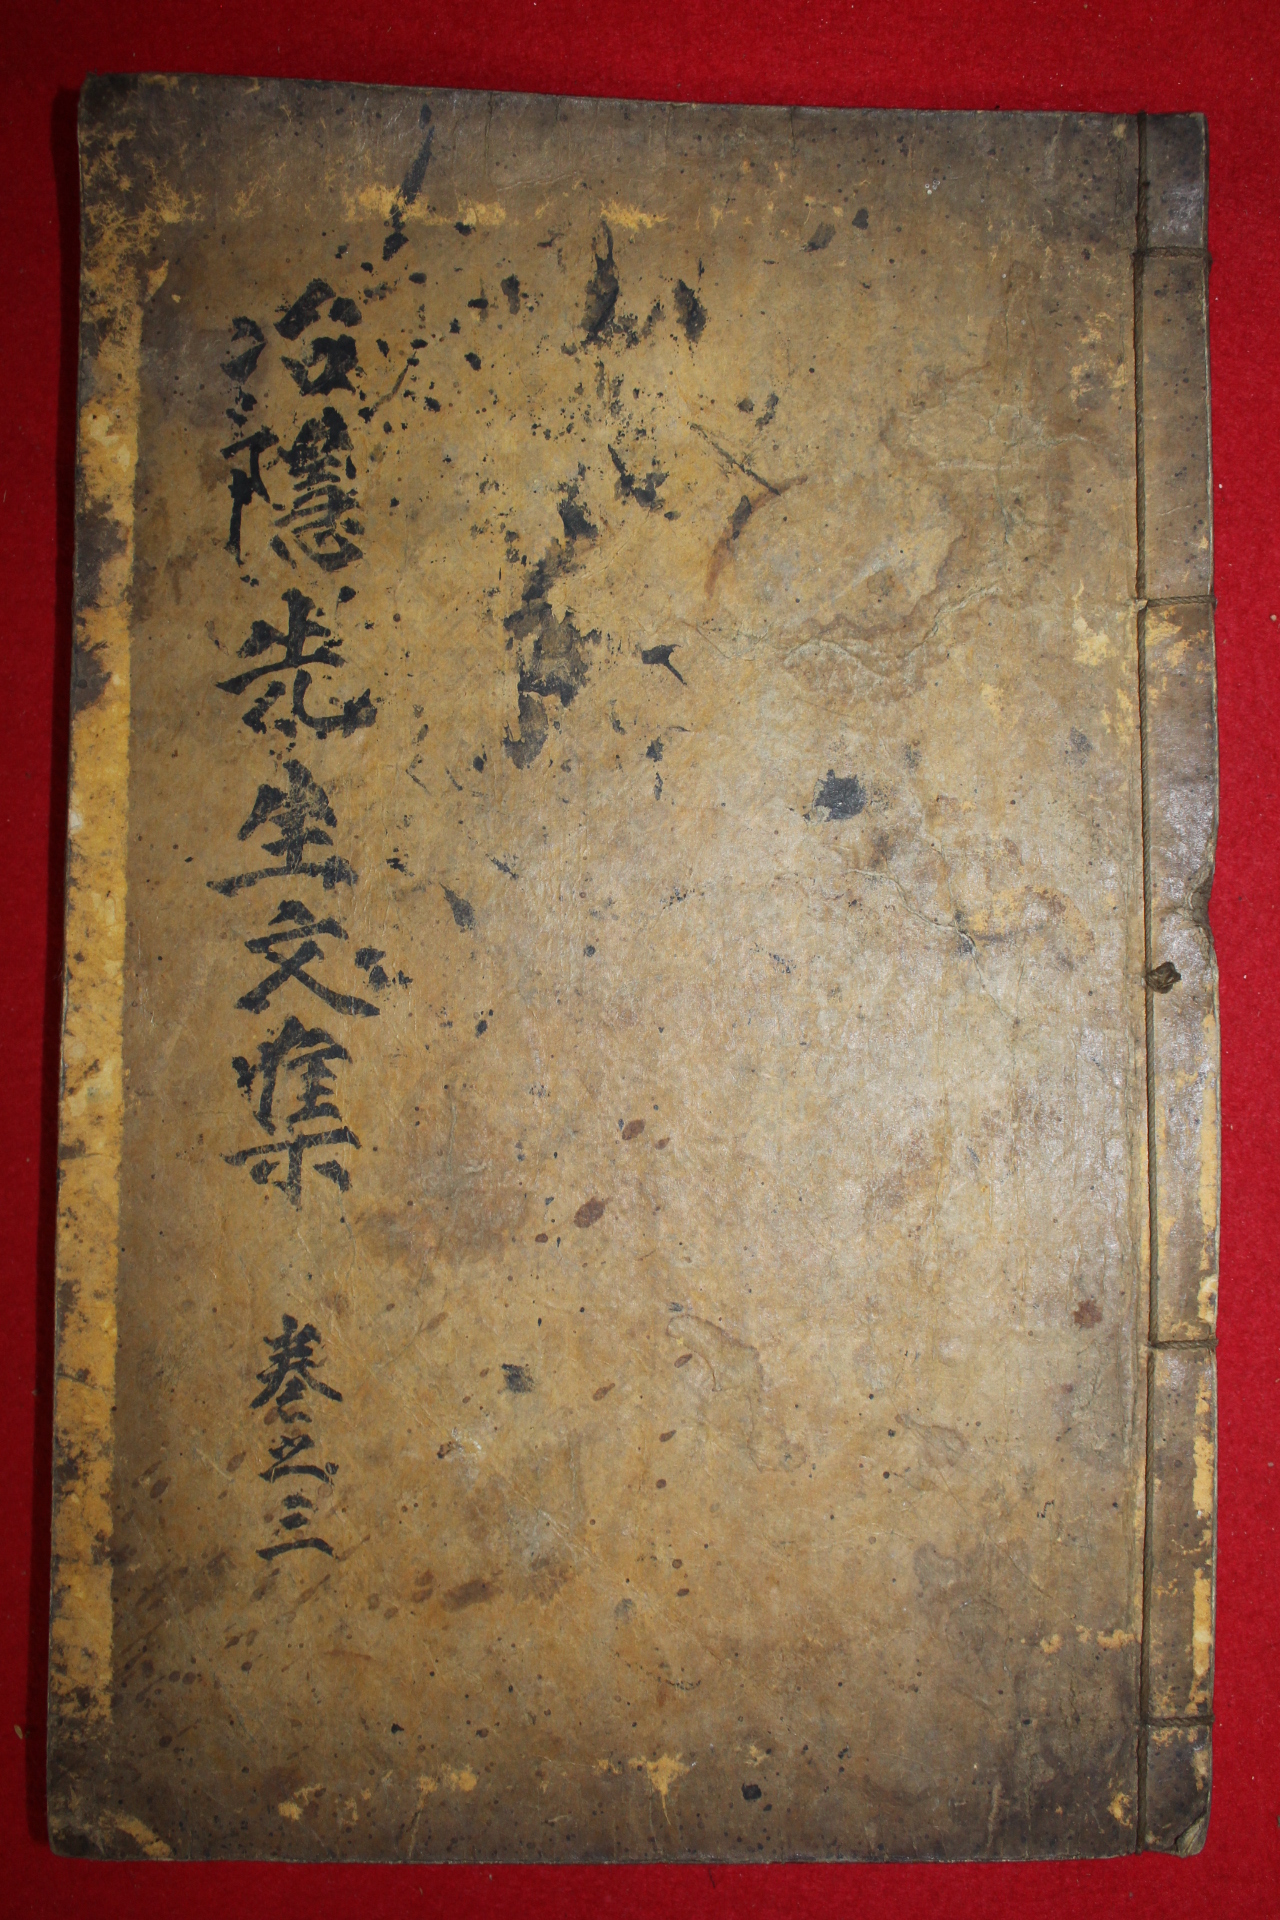 治隱先生文集 卷之三